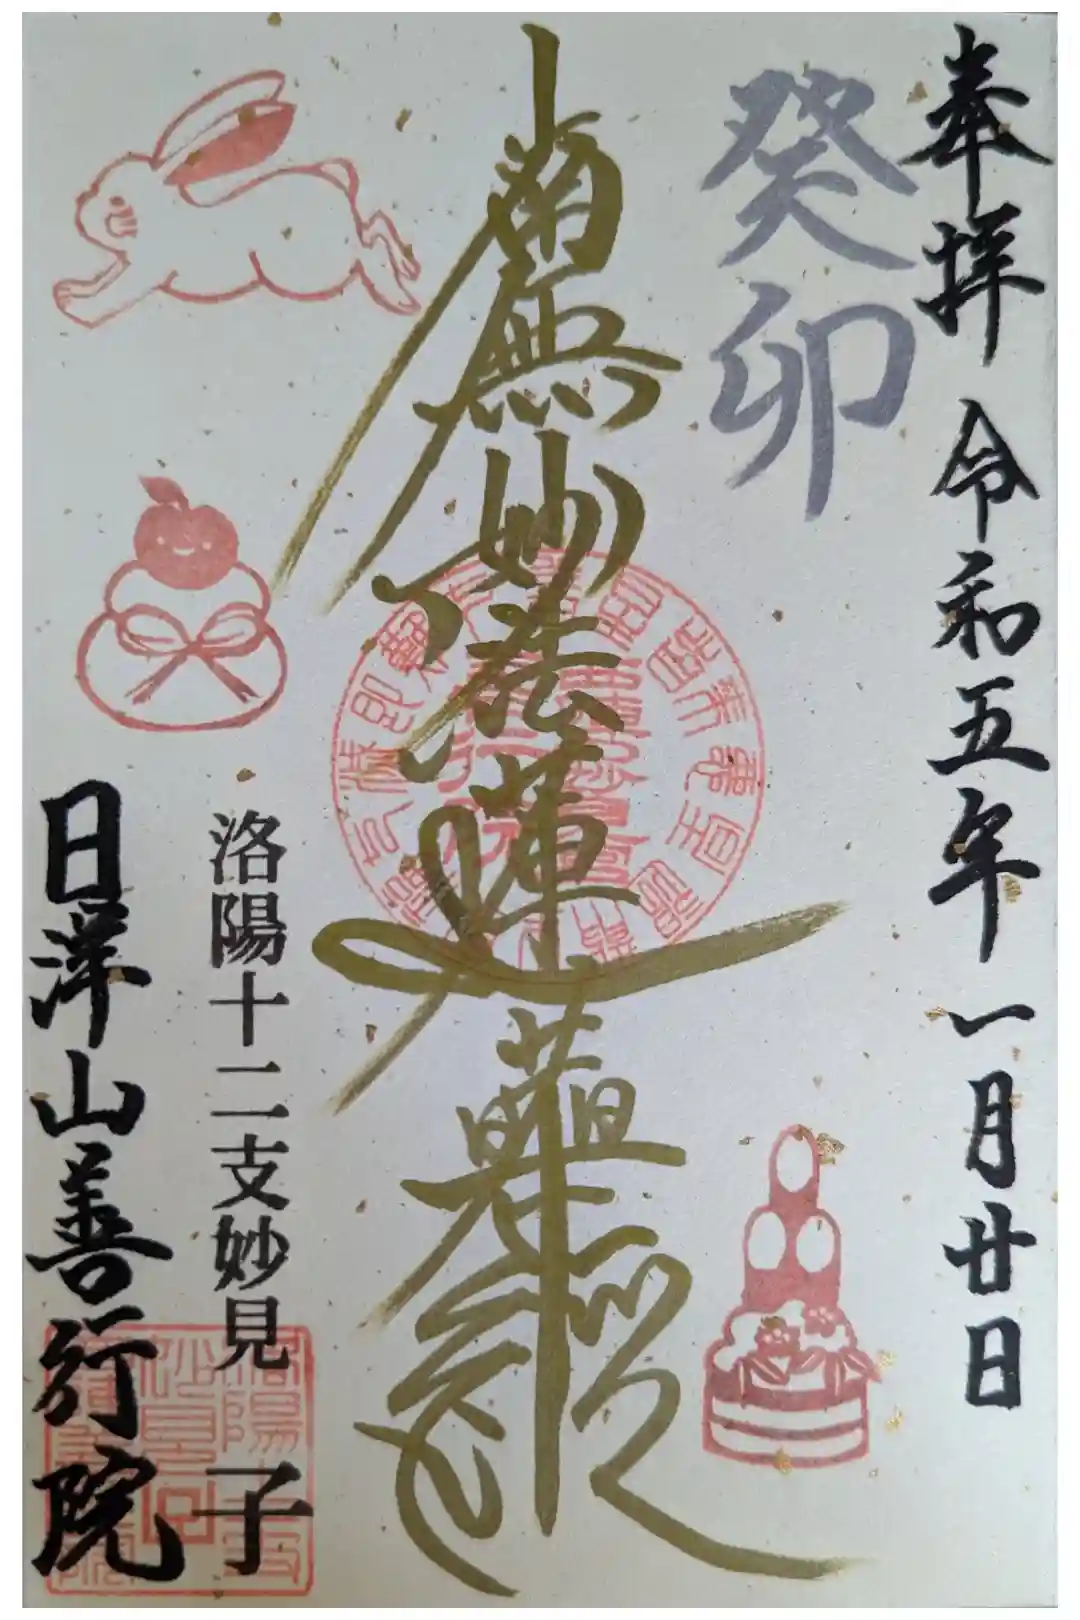 奉拝 令和五年一月廿日
癸卯
南無妙法蓮華經
洛陽十二支妙見 子
日洋山善行院